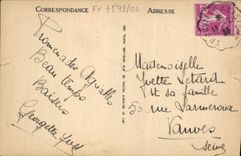 CORRESPONDANCE
FV 7593/02
ADRESSE
Promenades Agréables
Beau temps
Baisers
Georgette
Mademoiselle
Yvette Létard
et sa famille
50 rue Larmeroux
Vanves
Seine